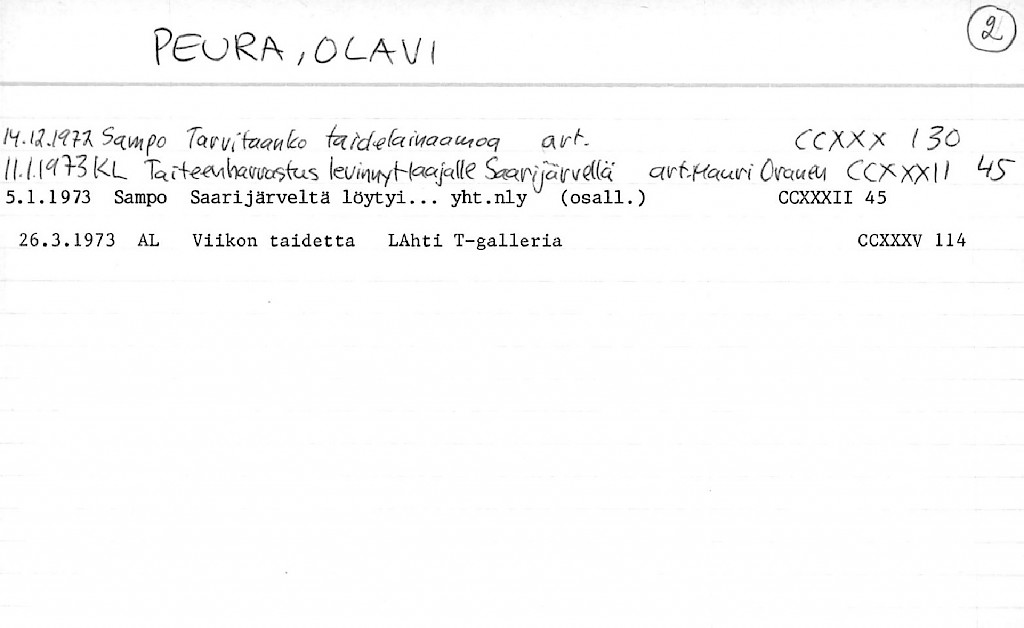 PEURA, OLAVI
2
14.12.1972 Sampo Tarvitaanko taidelainaamoa art. CCXXX 130
11.1.1973 KL Taiteenharrastus levinnyt laajalle Saarijärvellä art. Mauri Oranen CCXXXII 45
5.1.1973 Sampo Saarijärveltä löytyi... yht.nly (osall.) CCXXXII 45
26.3.1973 AL Viikon taidetta LAhti T-galleria CCXXXV 114